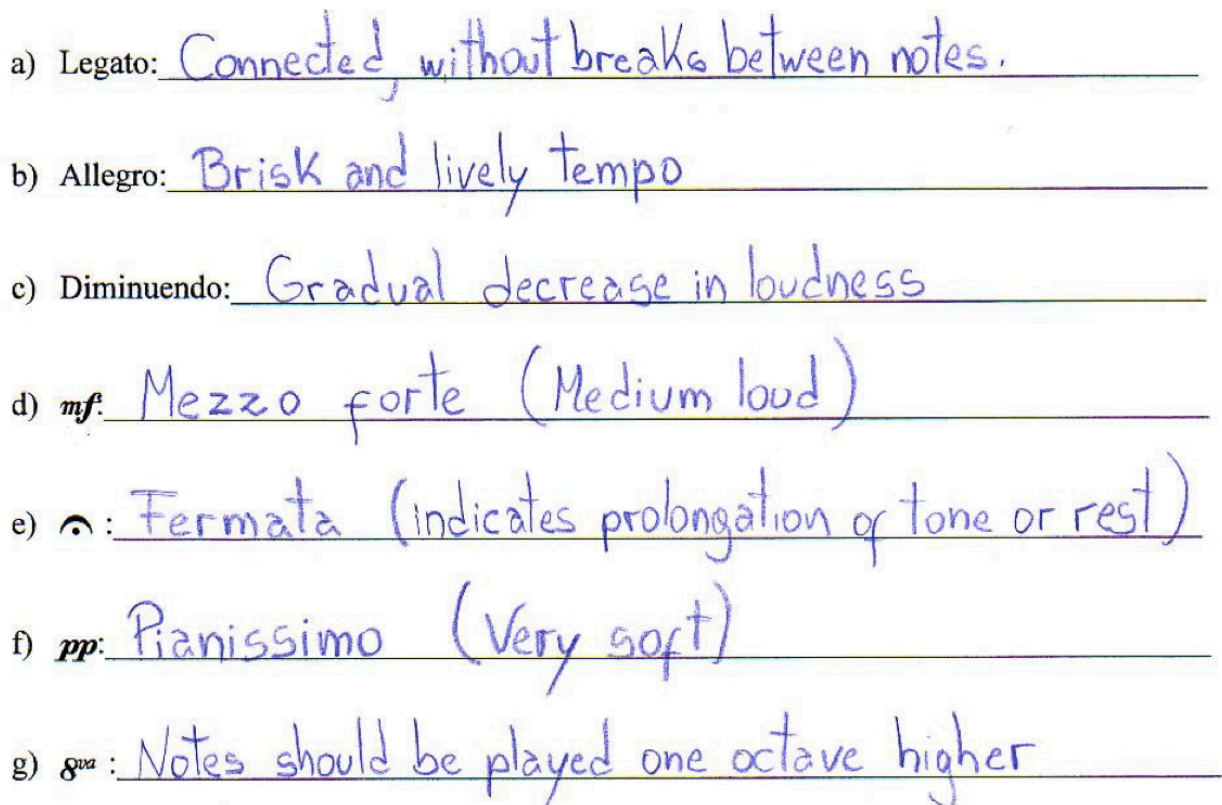 a) Legato: Connected, without breaks between notes.
b) Allegro: Brisk and lively tempo
c) Diminuendo: Gradual decrease in loudness
d) mf: Mezzo forte (Medium loud)
e) 𝄐 : Fermata (indicates prolongation of tone or rest)
f) pp: Pianissimo (Very soft)
g) 8va : Notes should be played one octave higher